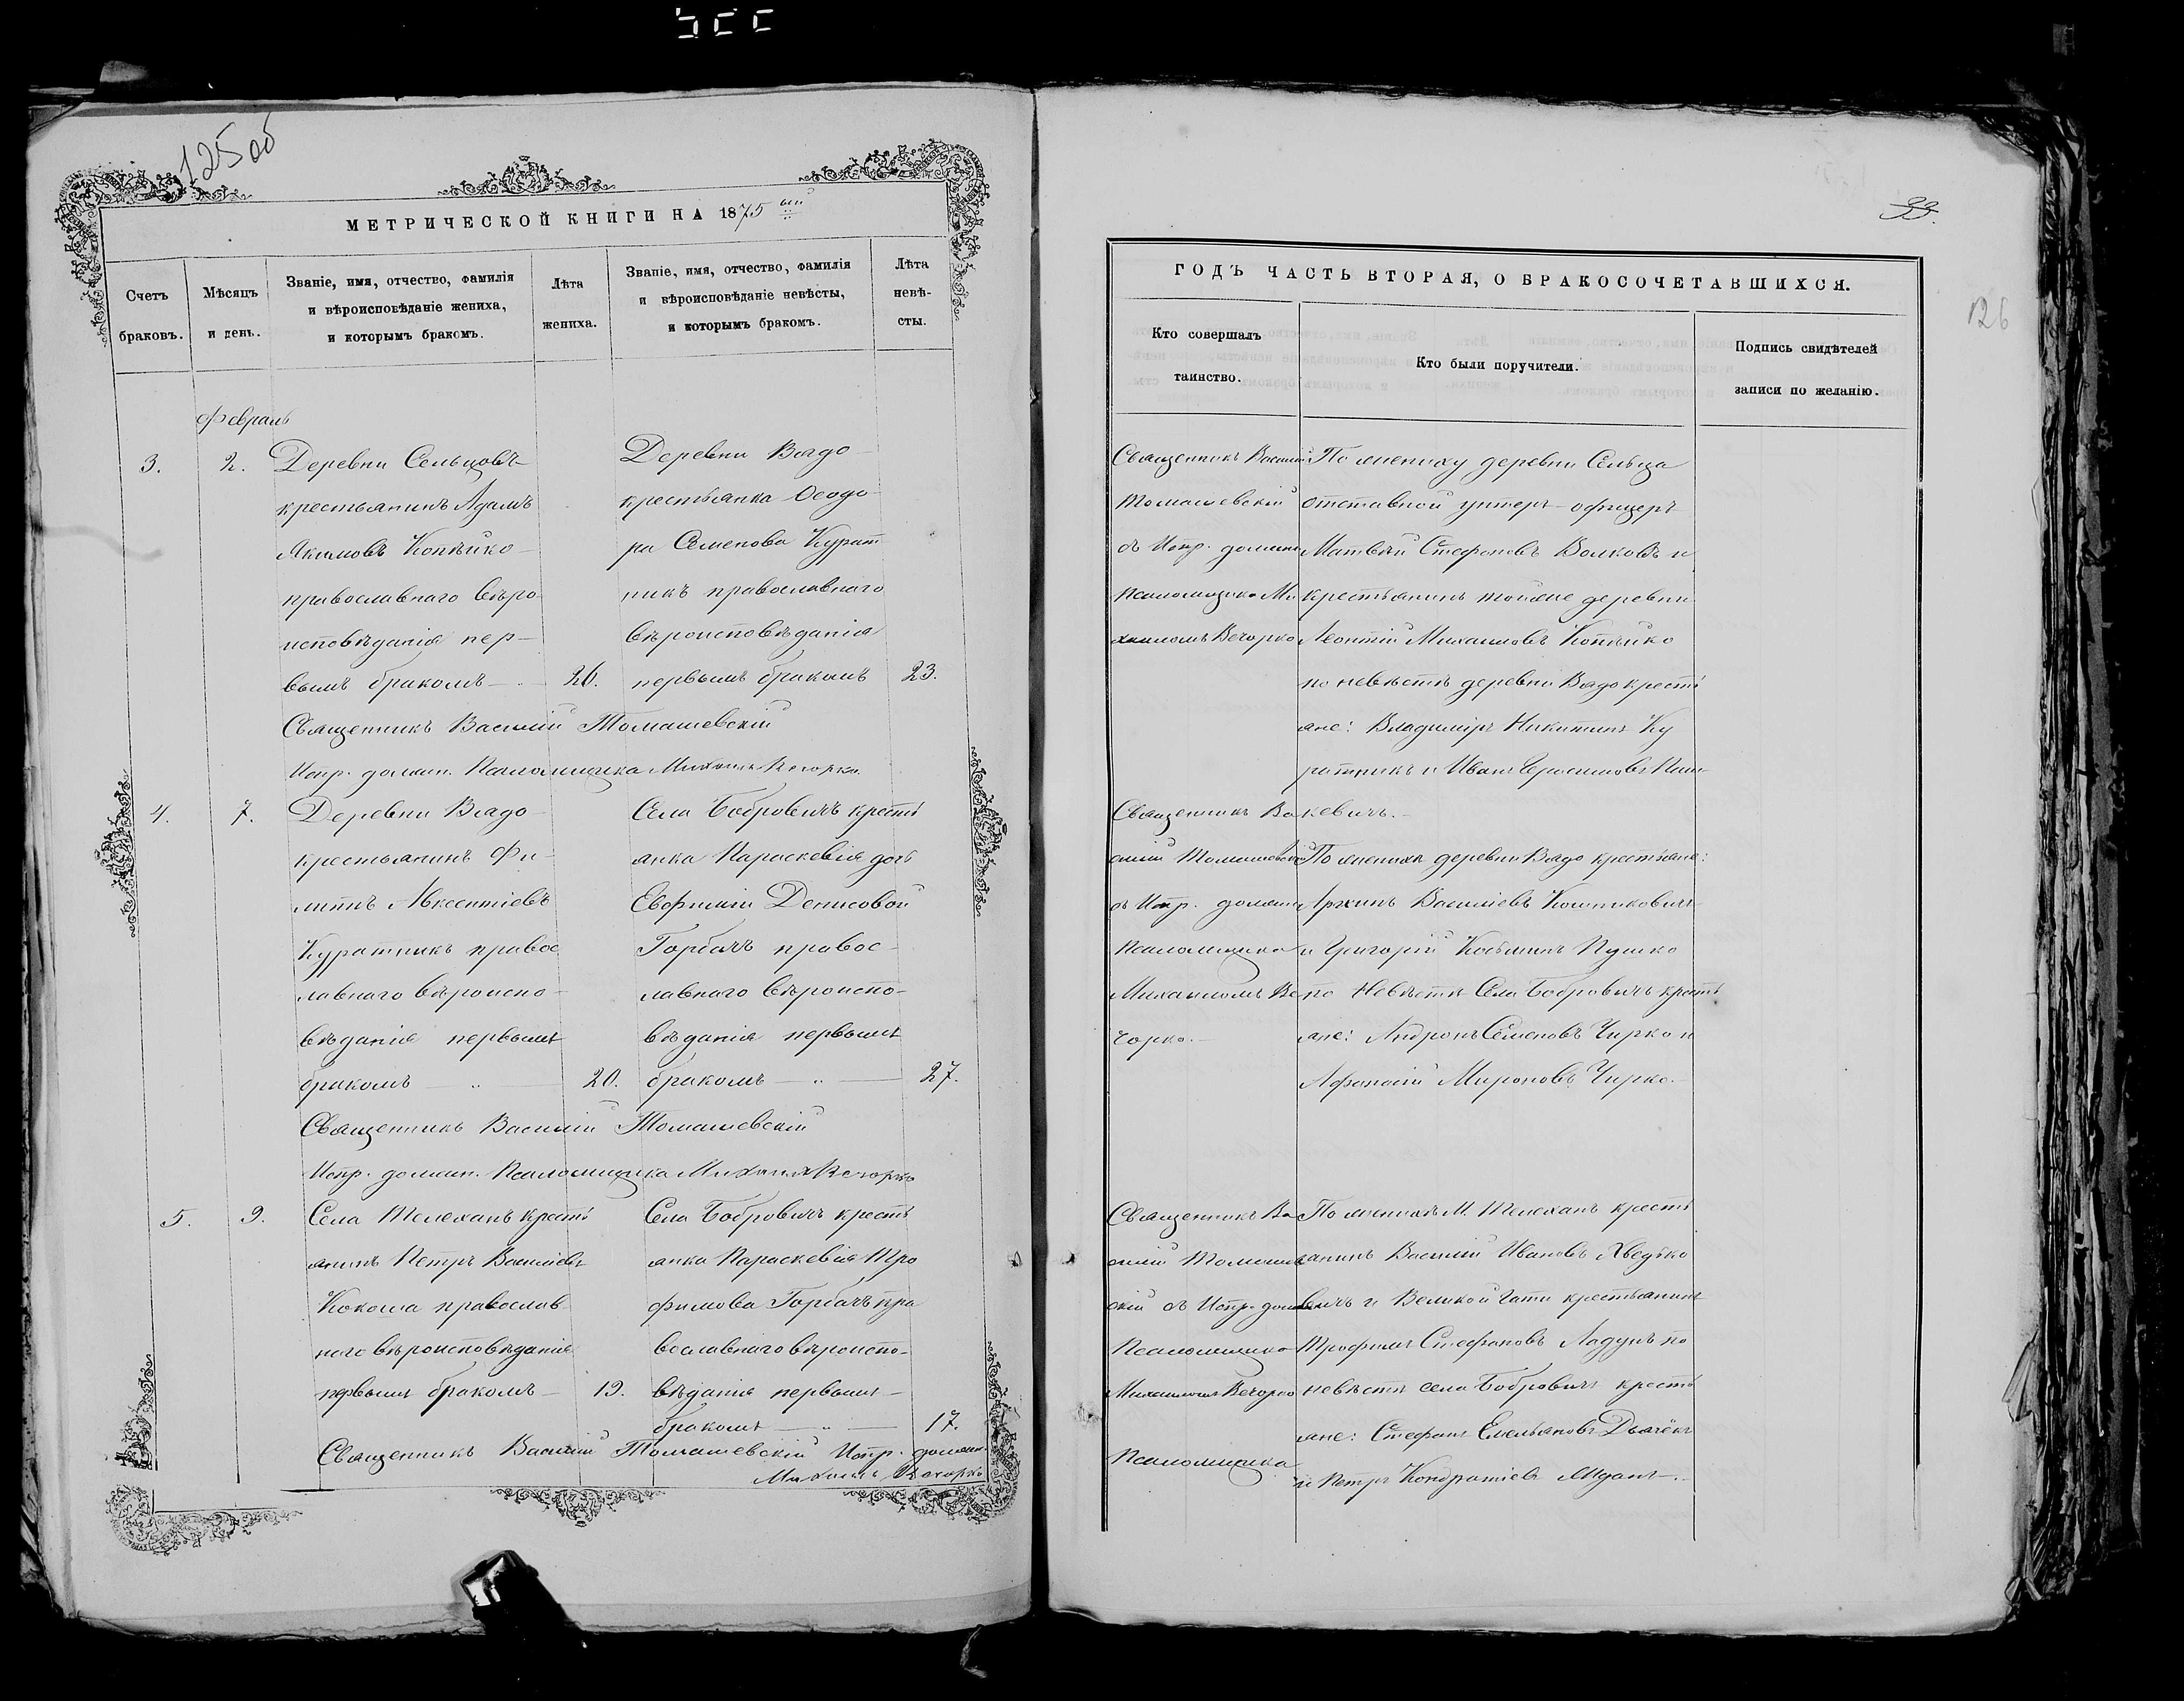 125об
МЕТРИЧЕСКОЙ КНИГИ НА 1875 ый
Счетъ
браковъ.
Мѣсяцъ
и день.
Званіе, имя, отчество, фамилія
и вѣроисповѣданіе жениха,
и которымъ бракомъ.
Лѣта
жениха.
Званіе, имя, отчество, фамилія
и вѣроисповѣданіе невѣсты,
и которымъ бракомъ.
Лѣта
невѣ-
сты.
Февраль
3.
2.
Деревни Сельцовъ
крестьянинъ Адамъ
Якимовъ Копѣйко
православнаго вѣро
исповѣданія пер-
вымъ бракомъ
26.
Деревни Вядо
крестьянка Ѳеодо
ра Семенова Курат
никъ православнаго
вѣроисповѣданія
первымъ бракомъ
23.
Священникъ Василій Томашевскій
Испр. должн. Псаломщика Михаилъ Вечорко
4.
7.
Деревни Вядо
крестьянинъ Фи-
липпъ Авксентіевъ
Куратникъ правос
лавнаго вѣроиспо-
вѣданія первымъ
бракомъ
20.
Села Бобровичъ кресть
янка Параскевія дочь
Евфиміи Денисовой
Горбачъ правос-
лавнаго вѣроиспо-
вѣданія первымъ
бракомъ
27.
Священникъ Василій Томашевскій
Испр. должн. Псаломщика Михаилъ Вечорко
5.
9.
Села Телеханъ кресть
янинъ Петръ Васильевъ
Кокоша православ
наго вѣроисповѣданія
первымъ бракомъ
19.
Села Бобровичъ кресть
янка Параскевія Тро
фимова Горбачъ пра
вославнаго вѣроиспо-
вѣданія первымъ
бракомъ
17.
Священникъ Василій Томашевскій Испр. должн.
Михаилъ Вечорко
33.
126
ГОДЪ ЧАСТЬ ВТОРАЯ, О БРАКОСОЧЕТАВШИХСЯ.
Кто совершалъ
таинство.
Кто были поручители.
Подпись свидѣтелей
записи по желанію.
Священникъ Василій
Томашевскій
съ Испр. должн
Псаломщика Ми
хаиломъ Вечорко
По жениху деревни Сельца
отставной унтеръ-офицеръ
Матвѣй Стефановъ Волковъ и
крестьянинъ тойже деревни
Леонтій Михаиловъ Копѣйко
по невѣстѣ деревни Вядо кресть
яне: Владиміръ Никитинъ Ку
ратникъ и Иванъ Герасимовъ Паш-
кевичъ.
Священникъ Ва
силій Томашевскій
съ Испр. должн
Псаломщика
Михаиломъ Ве
чорко.
По женихѣ деревни Вядо крестьяне:
Архипъ Василіевъ
и Григорій Косьминъ Пушко
по Невѣстѣ Села Бобровичъ кресть
яне: Андронъ Семеновъ Чирко и
Афанасій Мироновъ Чирко.
Священникъ Ва
силій Томашев
скій съ Испр. долж
Псаломщика
Михаиломъ Вечорко
Псаломщика
По женихѣ М. Телеханъ кресть
янинъ Василій Ивановъ Хведько
вичъ и Великой Гати крестьянинъ
Трофимъ Стефановъ Ладунъ по
невѣстѣ села Бобровичъ кресть
яне: Стефанъ Емельяновъ
и Петръ Кондратіевъ